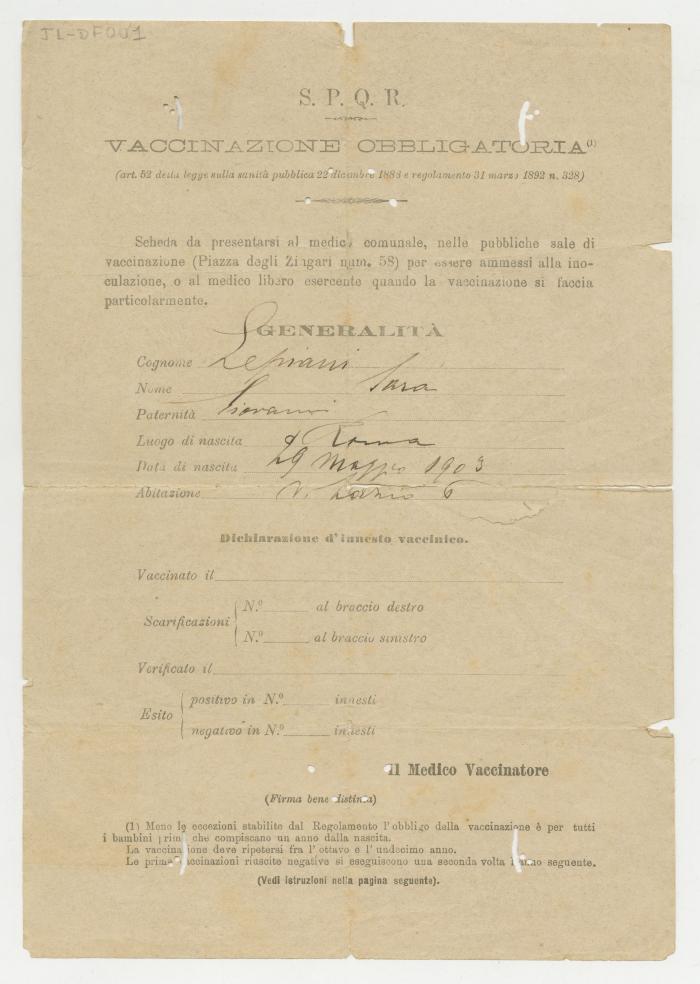 JL-DF001
S. P. Q. R.
VACCINAZIONE OBBLIGATORIA(1)
(art. 52 della legge sulla sanità pubblica 22 dicembre 1888 e regolamento 31 marzo 1892 n. 328)
Scheda da presentarsi al medico comunale, nelle pubbliche sale di
vaccinazione (Piazza degli Zingari num. 58) per essere ammessi alla ino-
culazione, o al medico libero esercente quando la vaccinazione si faccia
particolarmente.
GENERALITÀ
Cognome
Nome Sara
Paternità Giovanni
Luogo di nascita Roma
Data di nascita 29 Maggio 1903
Abitazione V. Lazio 6
Dichiarazione d'innesto vaccinico.
Vaccinato il
Scarificazioni
N.º al braccio destro
N.º al braccio sinistro
Verificato il
Esito
positivo in N.º innesti
negativo in N.º innesti
Il Medico Vaccinatore
(Firma bene distinta)
(1) Meno le eccezioni stabilite dal Regolamento l'obbligo della vaccinazione è per tutti
i bambini prima che compiscano un anno dalla nascita.
La vaccinazione deve ripetersi fra l'ottavo e l'undecimo anno.
Le prime vaccinazioni riuscite negative si eseguiscono una seconda volta l'anno seguente.
(Vedi istruzioni nella pagina seguente).